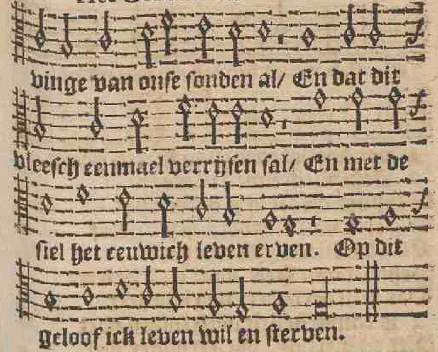 vinge van onse sonden al/ En dat dit
vleesch eenmael verrijsen sal/ En met de
siel het eeuwich leven erven. Op dit
geloof ick leven wil en sterven.